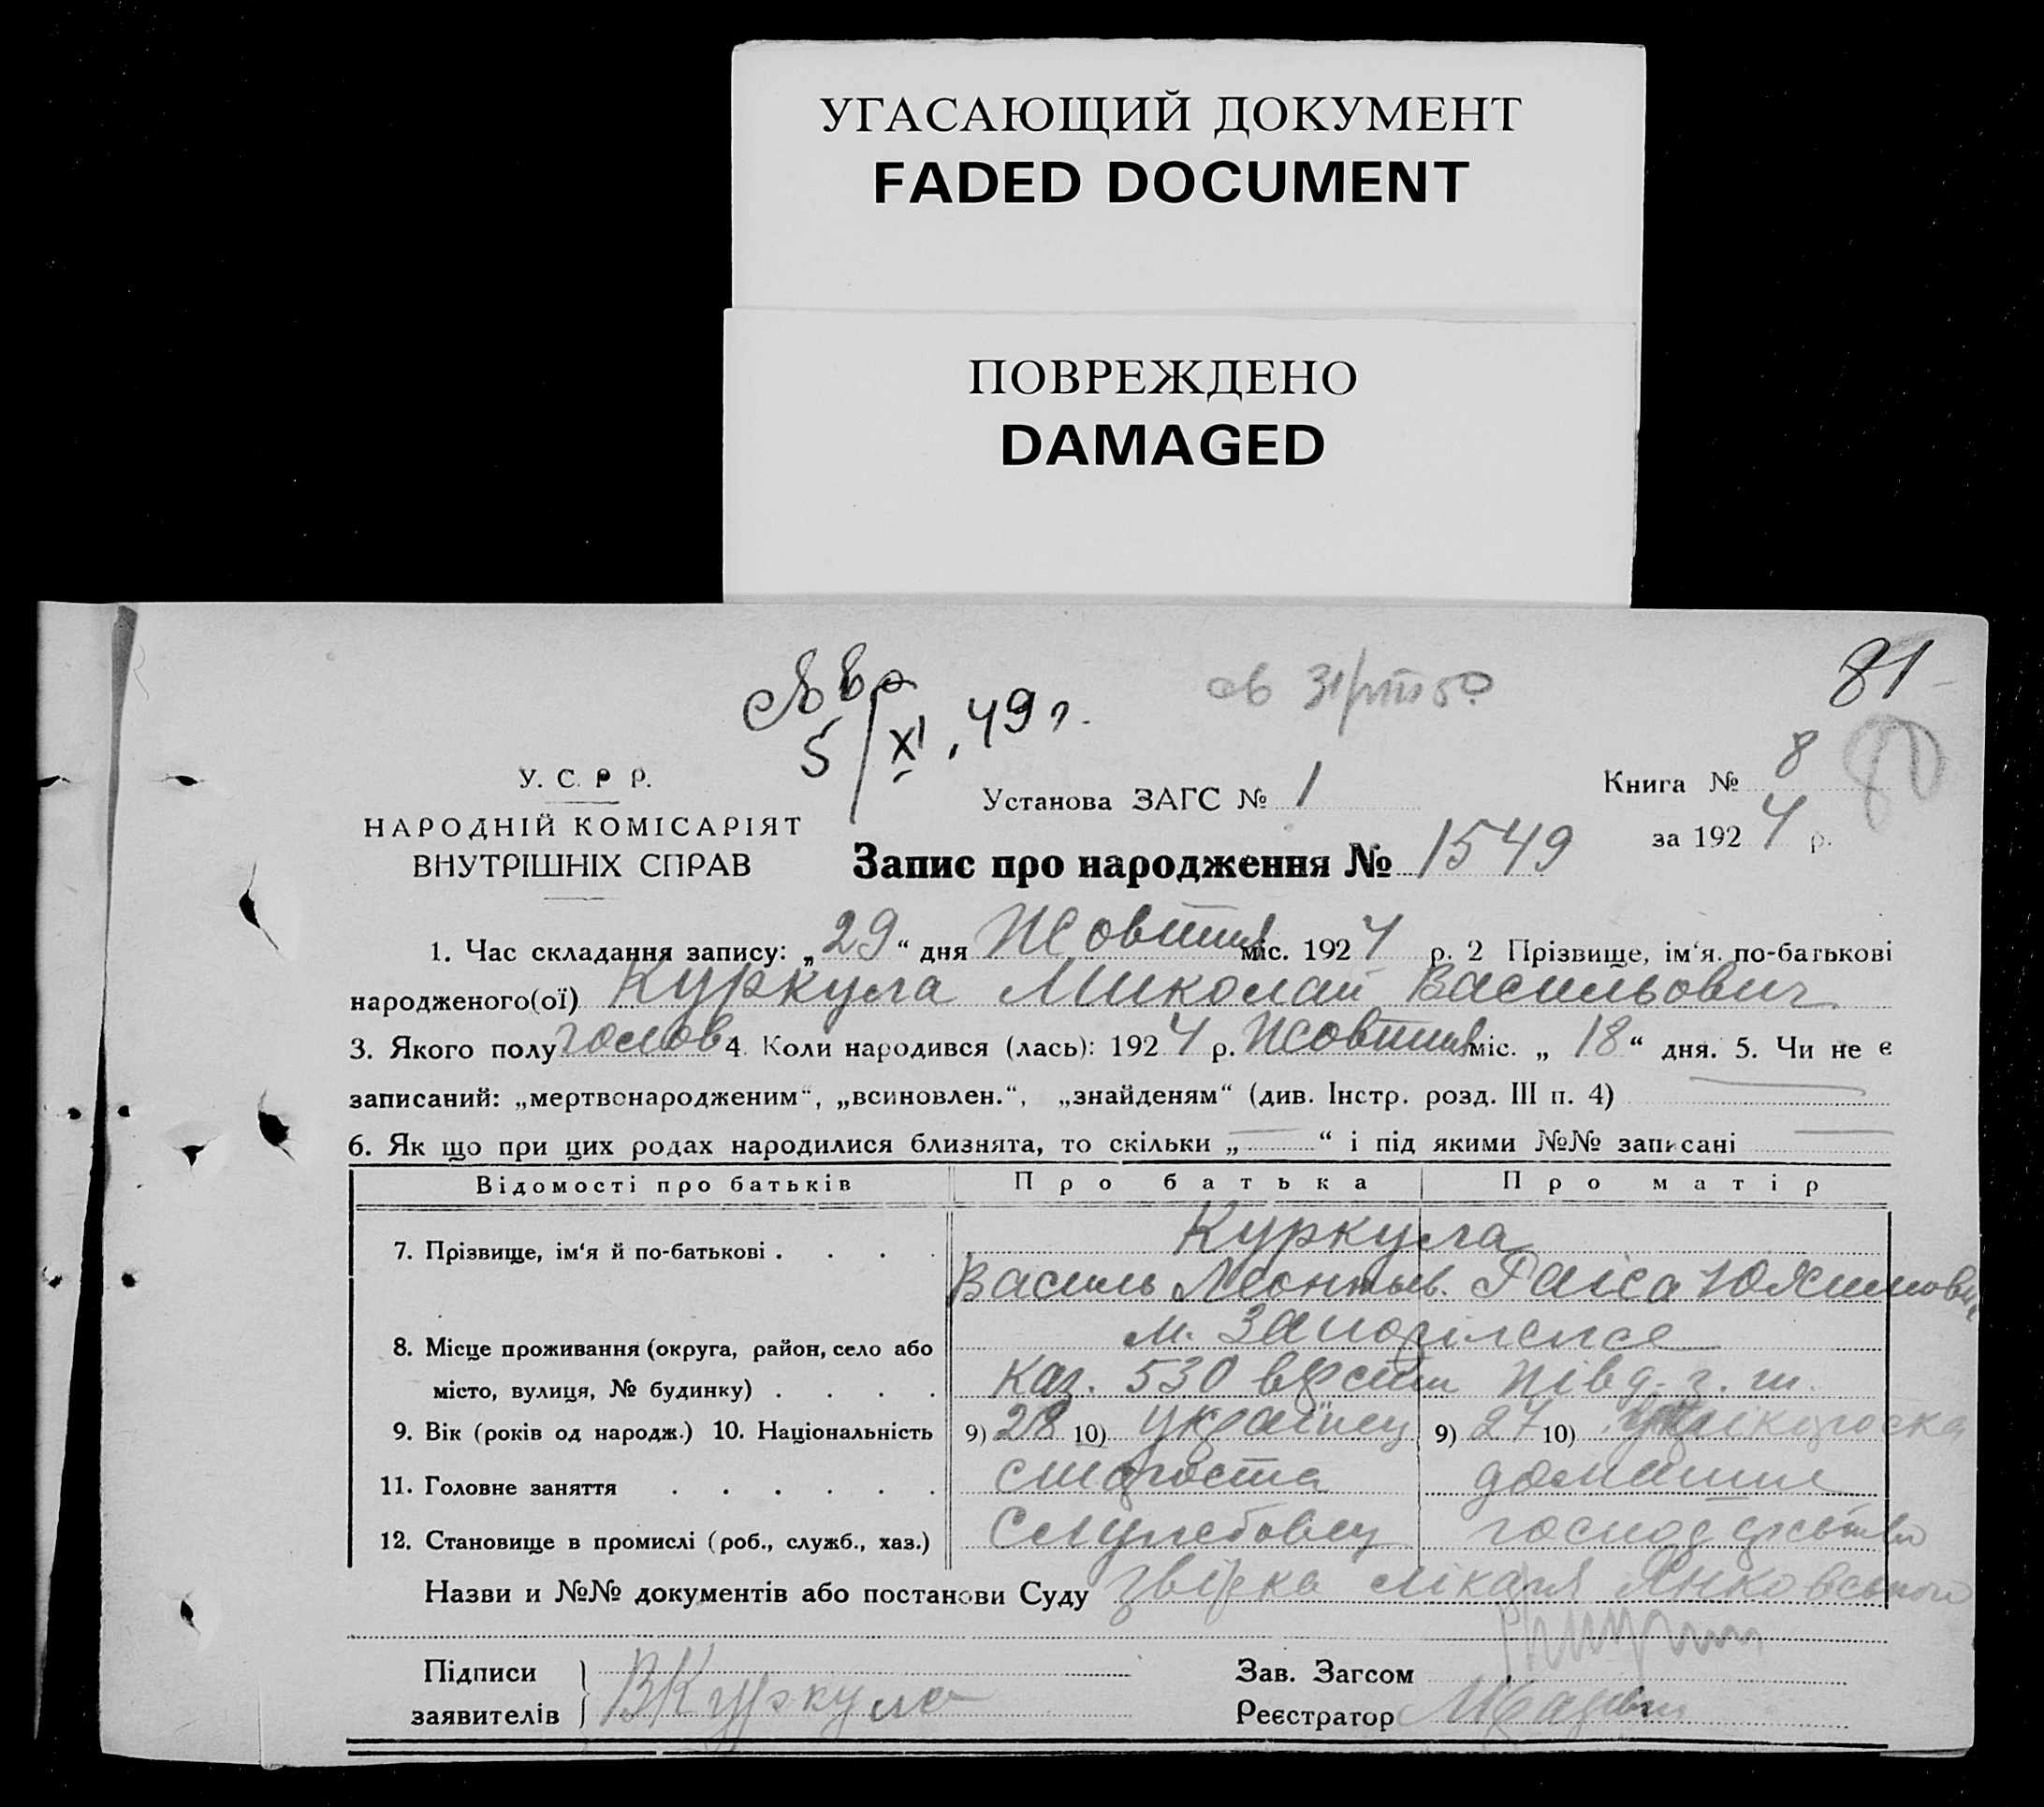 УГАСАЮЩИЙ ДОКУМЕНТ
FADED DOCUMENT
ПОВРЕЖДЕНО
DAMAGED
81
5/XI, 49 г.
80
У. С. Р Р.
НАРОДНІЙ КОМІСАРІЯТ
ВНУТРІШНІХ СПРАВ
Установа ЗАГС № 1
Книга № 8
за 1924 р.
Запис про народження № 1549
1. Час складання запису: „29“ дня Жовтня міс. 1924 р. 2 Прізвище, ім'я. по-батькові
народженого(ої) Куркула Миколай Васильович
3. Якого полу 4. Коли народився (лась): 1924 р. Жовтня міс. „18“ дня. 5. Чи не є
записаний: „мертвонародженим“, „всиновлен.“, „знайденям“ (див. Інстр. розд. III п. 4)
6. Як що при цих родах народилися близнята, то скільки „ “ і під якими №№ записані
Відомості про батьків Про батька Про матір
7. Прізвище, ім'я й по-батькові . . . . Куркула
Василь Леонтьев. Раіса
8. Місце проживання (округа, район, село або м.
місто, вулиця, № будинку) . . . . каз. 530 версти Півд. з. ш.
9. Вік (років од народж.) 10. Національність 9) 28 10) Українец 9) 27 10)
11. Головне заняття . . . . . . домашне
12. Становище в промислі (роб., служб., хаз.) Службовец господарство
Назви и №№ документів або постанови Суду лікаря Янковського
Підписи
заявителів ВКуркула
Зав. Загсом
Реєстратор